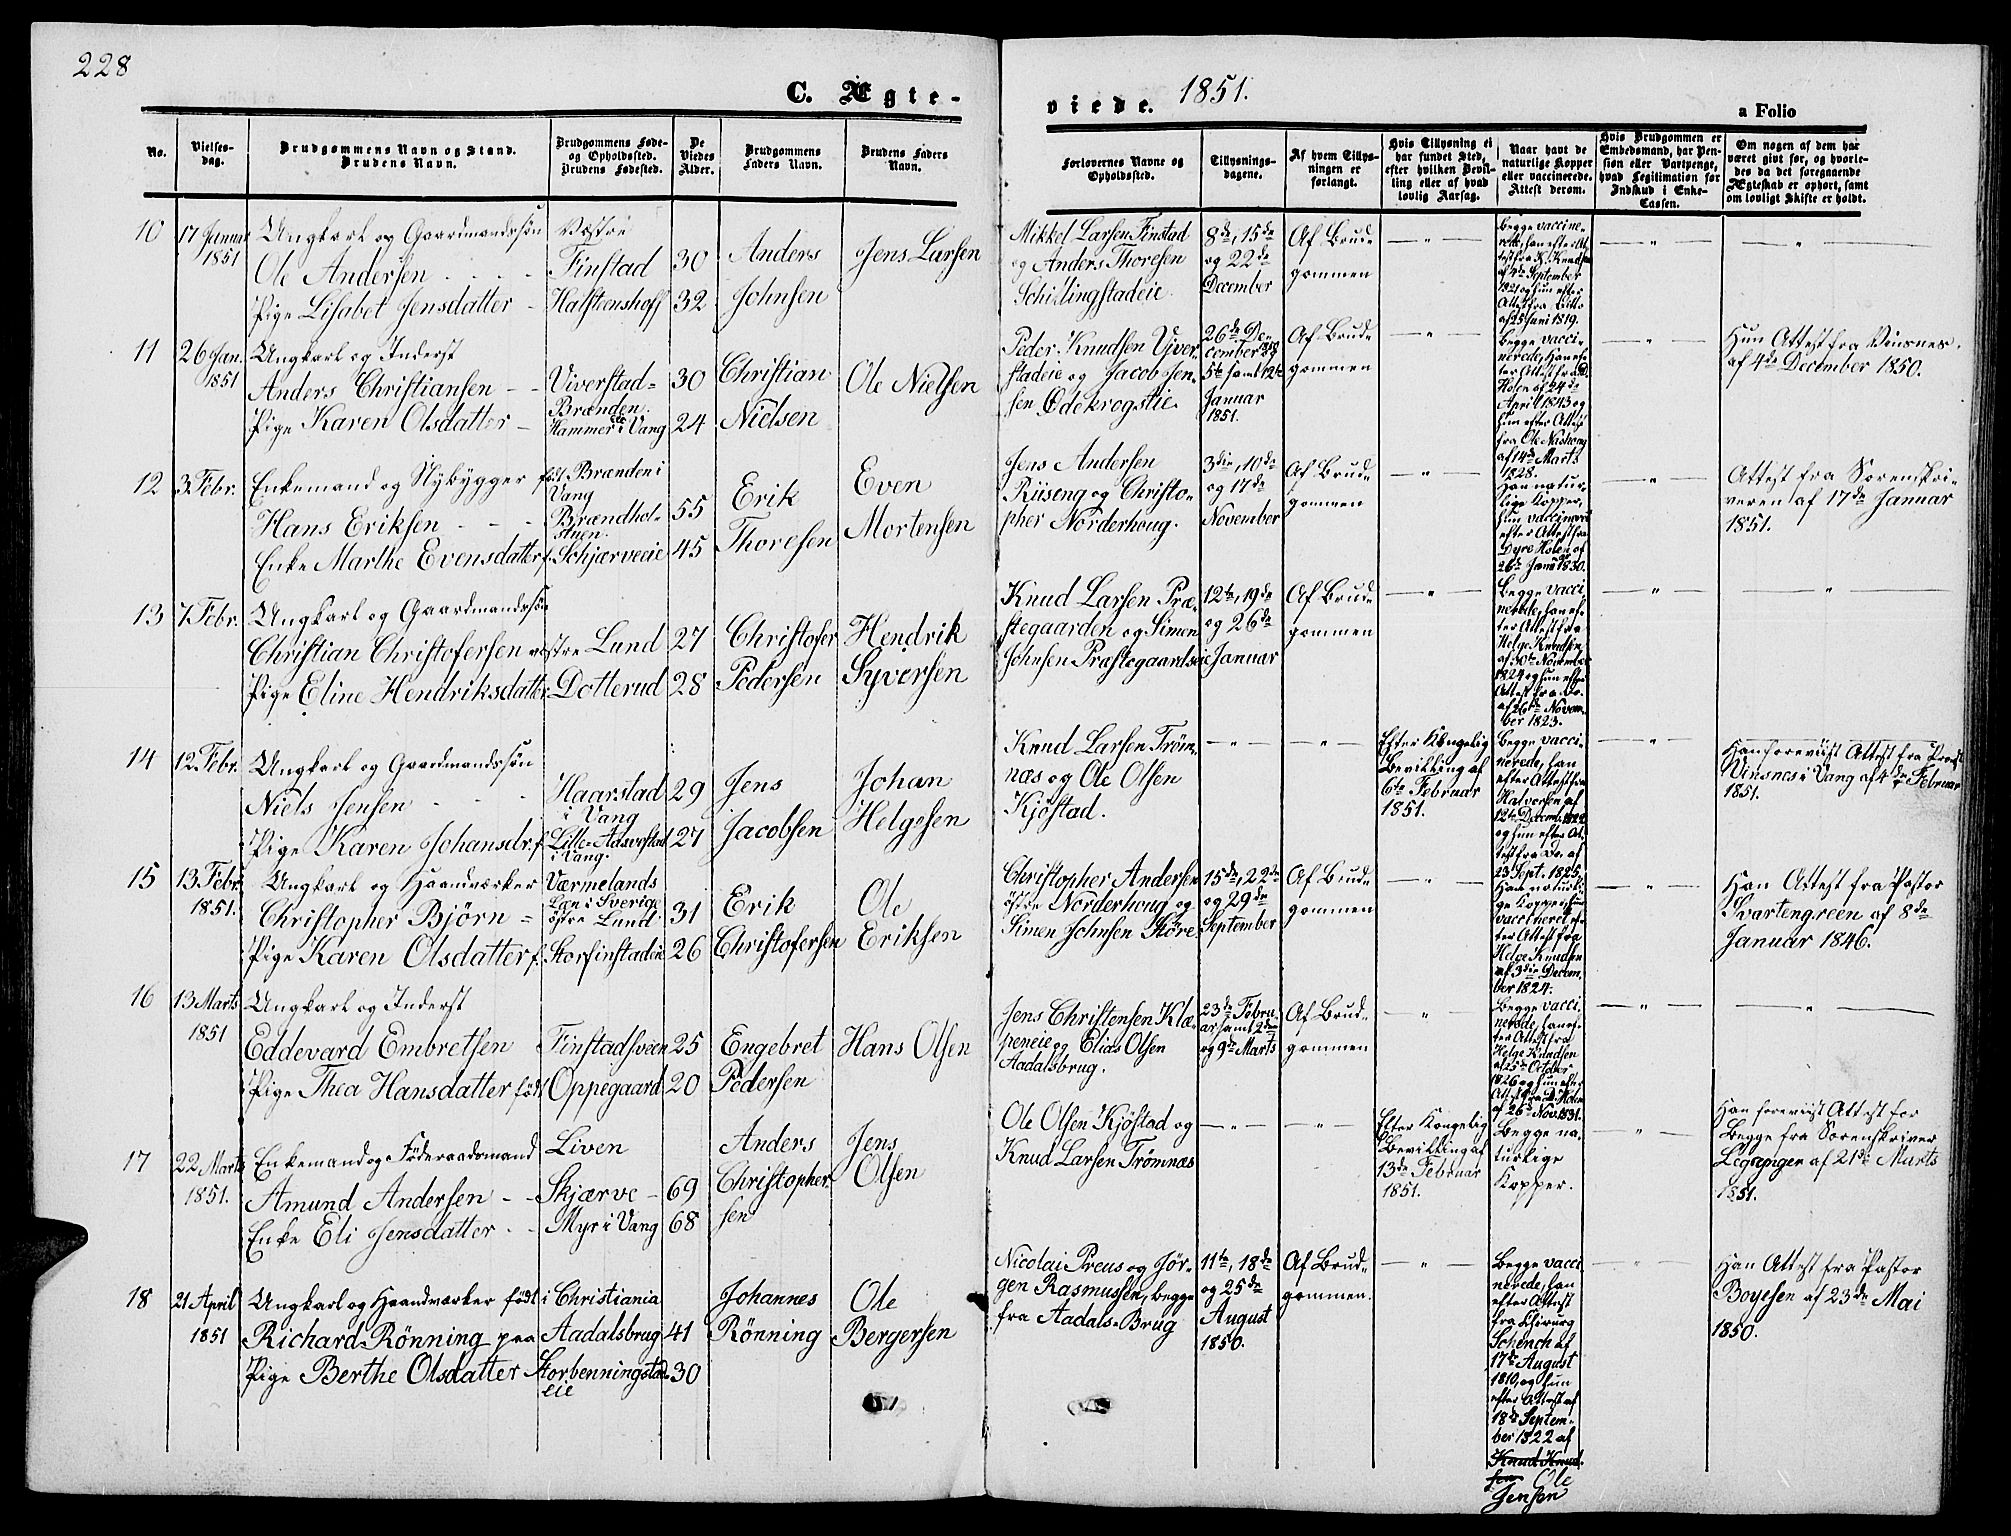 228
C. Ægte-
viede. 1851.
a Folio
No.
Vielses-
dag.
Brudgommens Navn og Stand.
Brudens Navn.
Brudgommens Føde-
og Opholdssted.
Brudens Fødested.
De
Viedes
Alder.
Brudgommens
Faders Navn.
Brudens Faders
Navn.
Forlovernes Navne og
Opholdssted.
Tillysnings-
dagene.
Af hvem Tillys-
ningen er
forlangt.
Hvis Tillysning ei
har fundet Sted,
efter hvilken Bevil-
ling eller af hvad
lovlig Aarsag.
Naar havt de
naturlige Kopper
eller vaccinerede.
Attest derom.
Hvis Brudgommen er
Embedsmand, har Pen-
sion eller Vartpenge,
hvad Legitimation for
Indskud i Enke-
Cassen.
Om nogen af dem har
været givt før, og hvorle-
des da det foregaaende
Ægteskab er ophørt, samt
om lovligt Skifte er holdt.
10
17 Januar
1851
Ungkarl og Gaardmandssøn
Ole Andersen
Pige Lisabet Jensdatter
Vestre
Finstad
Halstenshoff
30
32
Anders
Johnsen
Jens Larsen
Mikkel Larsen Finstad
og Anders Thoresen
Schillingstadeie.
8de, 15de
og 22de
December
Af Brud=
gommen
— " —
Begge vaccine-
rede, han efter At-
test fra K. Knudsen
af 4de September
1821 og hun efter
Attest fra Ditto
af 25 Juni 1819.
— " —
— " —
11
26 Jan.
1851
Ungkarl og Inderst
Anders Christiansen
Pige Karen Olsdatter
Viverstad=
Brænden.
Hammer i Vang
30
24
Christian
Nielsen
Ole Nielsen
Peder Knudsen Vjver-
stadeie og Jacob Jen-
sen Ödekrogstie.
26de De-
cember 1850
5te samt 12te
Januar
1851.
Af Brud=
gommen
— " —
Begge vacci-
nerede, Han ef-
ter Attest fra D.
Holen af 24de
April 1843 og
hun efter Attest
fra Ole Nashoug
af 14de Marts
1828.
— " —
Hun Attest fra Vinsnes.
af 4de December 1850.
12
3. Febr.
Enkemand og Nybygger
Hans Eriksen
Enke Marthe Evensdatter f.
født Brænden i
Vang
Brændhol-
stuen.
Schjærveeie
55
45
Erik
Thoresen
Even
Mortensen
Jens Andersen
Riiseng og Christo-
pher Norderhoug.
3die, 10de
og 17de
November
Af Brud=
gommen
— " —
Han natur-
lige Kopper,
hun vaccineret
efter Attest fra
Dyre Holen af
26de Juni 1830.
— " —
Attest fra Sorenskri-
veren af 17de Januar
1851.
13
7 Febr.
Ungkarl og Gaardmandssøn
Christian Christofersen
Pige Eline Hendriksdatter
vestre Lund
Dotterud
27
28
Christofer
Pedersen
Hendrik
Syversen
Knud Larsen Præ-
stegaarden og Simen
Johnsen Præstegaardseie
12te, 19de
og 26de
Januar
Af Brud=
gommen
— " —
Begge vacci
nerede, han ef-
ter Attest fra
Helge Knudsen
af 30te November
1824 og hun efter
Attest fra Do.
af 26de Novem-
ber 1823.
— " —
— " —
14
12. Febr.
Ungkarl og Gaardmandssøn
Niels Jensen
Pige Karen Johansdr. f.
Haarstad
i Vang
Lille-Aasvestad
i Vang.
29
27
Jens
Jacobsen
Johan
Helgesen
Knud Larsen Tröm-
næs og Ole Olsen
Kjöstad.
— " —
— " —
Efter Kongelig
Bevilling af
6te Februar
1851.
Begge vacci-
nerede, han
efter Attest fra
Halvorsen af
12te Decemb. 1822
og hun efter At-
test fra Do. af
23 Sept. 1825.
— " —
Han foreviist Attest fra Provst
Vinsnes i Vang af 4de Februar
1851.
15
13. Febr.
1851.
Ungkarl og Haandværker
Christopher Bjørn =
Pige Karen Olsdatter f.
Værmelands
Læn i Sverige
östre Lund
Storfinstadeie
31
26
Erik
Christofersen
Ole
Eriksen
Christopher Andersen
östre Norderhoug og
Simen Johnsen Höre.
15de, 22de
og 29de
September
Af Brud=
gommen
— " —
Han naturli-
ge Kopper, hun
vaccineret ef-
ter Attest fra
Helge Knudsen
af 3die Decem-
ber 1824.
— " —
Han Attest fra Pastor
Svartengreen af 8de
Januar 1846.
16
13 Marts
1851
Ungkarl og Inderst
Eddevard Embretsen
Pige Thea Hansdatter født
Finstadsveen
Oppegaard
25
20
Engebret
Pedersen
Hans Olsen
Jens Christensen Klæ-
peneie og Elias Olsen
Aadalsbrug.
23de Febru-
ar samt 2den
og 9de Marts
Af Brud-
gommen
— " —
Begge vacci
nerede, han ef-
ter Attest fra
Helge Knudsen
af 25de October
1826 og hun efter
Attest fra D. Holen
af 26de Nov. 1831.
— " —
— " —
17
22 Marts
1851.
Enkemand og Föderaadsmand
Amund Andersen
Enke Eli Jensdatter
Liven
Skjærve
Myr i Vang
69
68
Anders
Christopher-
sen
Jens
Olsen
Ole Olsen Kjöstad og
Knud Larsen Trömnæs
— " —
— " —
Efter Kongelig
Bevilling af
13de Februar
1851.
Begge na-
turlige
Kopper.
— " —
Han foreviist Attest for
Begge fra Sorenskriver
Leganger af 21de Marts
1851.
18
21 April
1851
Ungkarl og Haandværker født
Richard Rönning paa
Pige Berthe Olsdatter
i Christiania
Aadalsbrug
Storbenningstad-
eie
41
30
Johannes
Rönning
Ole
Bergersen
Nicolai Preus og Jör-
gen Rasmussen, begge
fra Aadals-Brug
11te, 18de
og 25de
August
1850.
Af Brud-
gommen.
— " —
Begge vacci
nerede, han
efter Attest
fra Chirurg
Schench af
17de August
1810, og hun
efter Attest af
18de Septem-
ber 1822 af
Knud Knud-
sen Ole
Jensen
— " —
Han Attest fra Pastor
Boyesen af 23de Mai
1850.